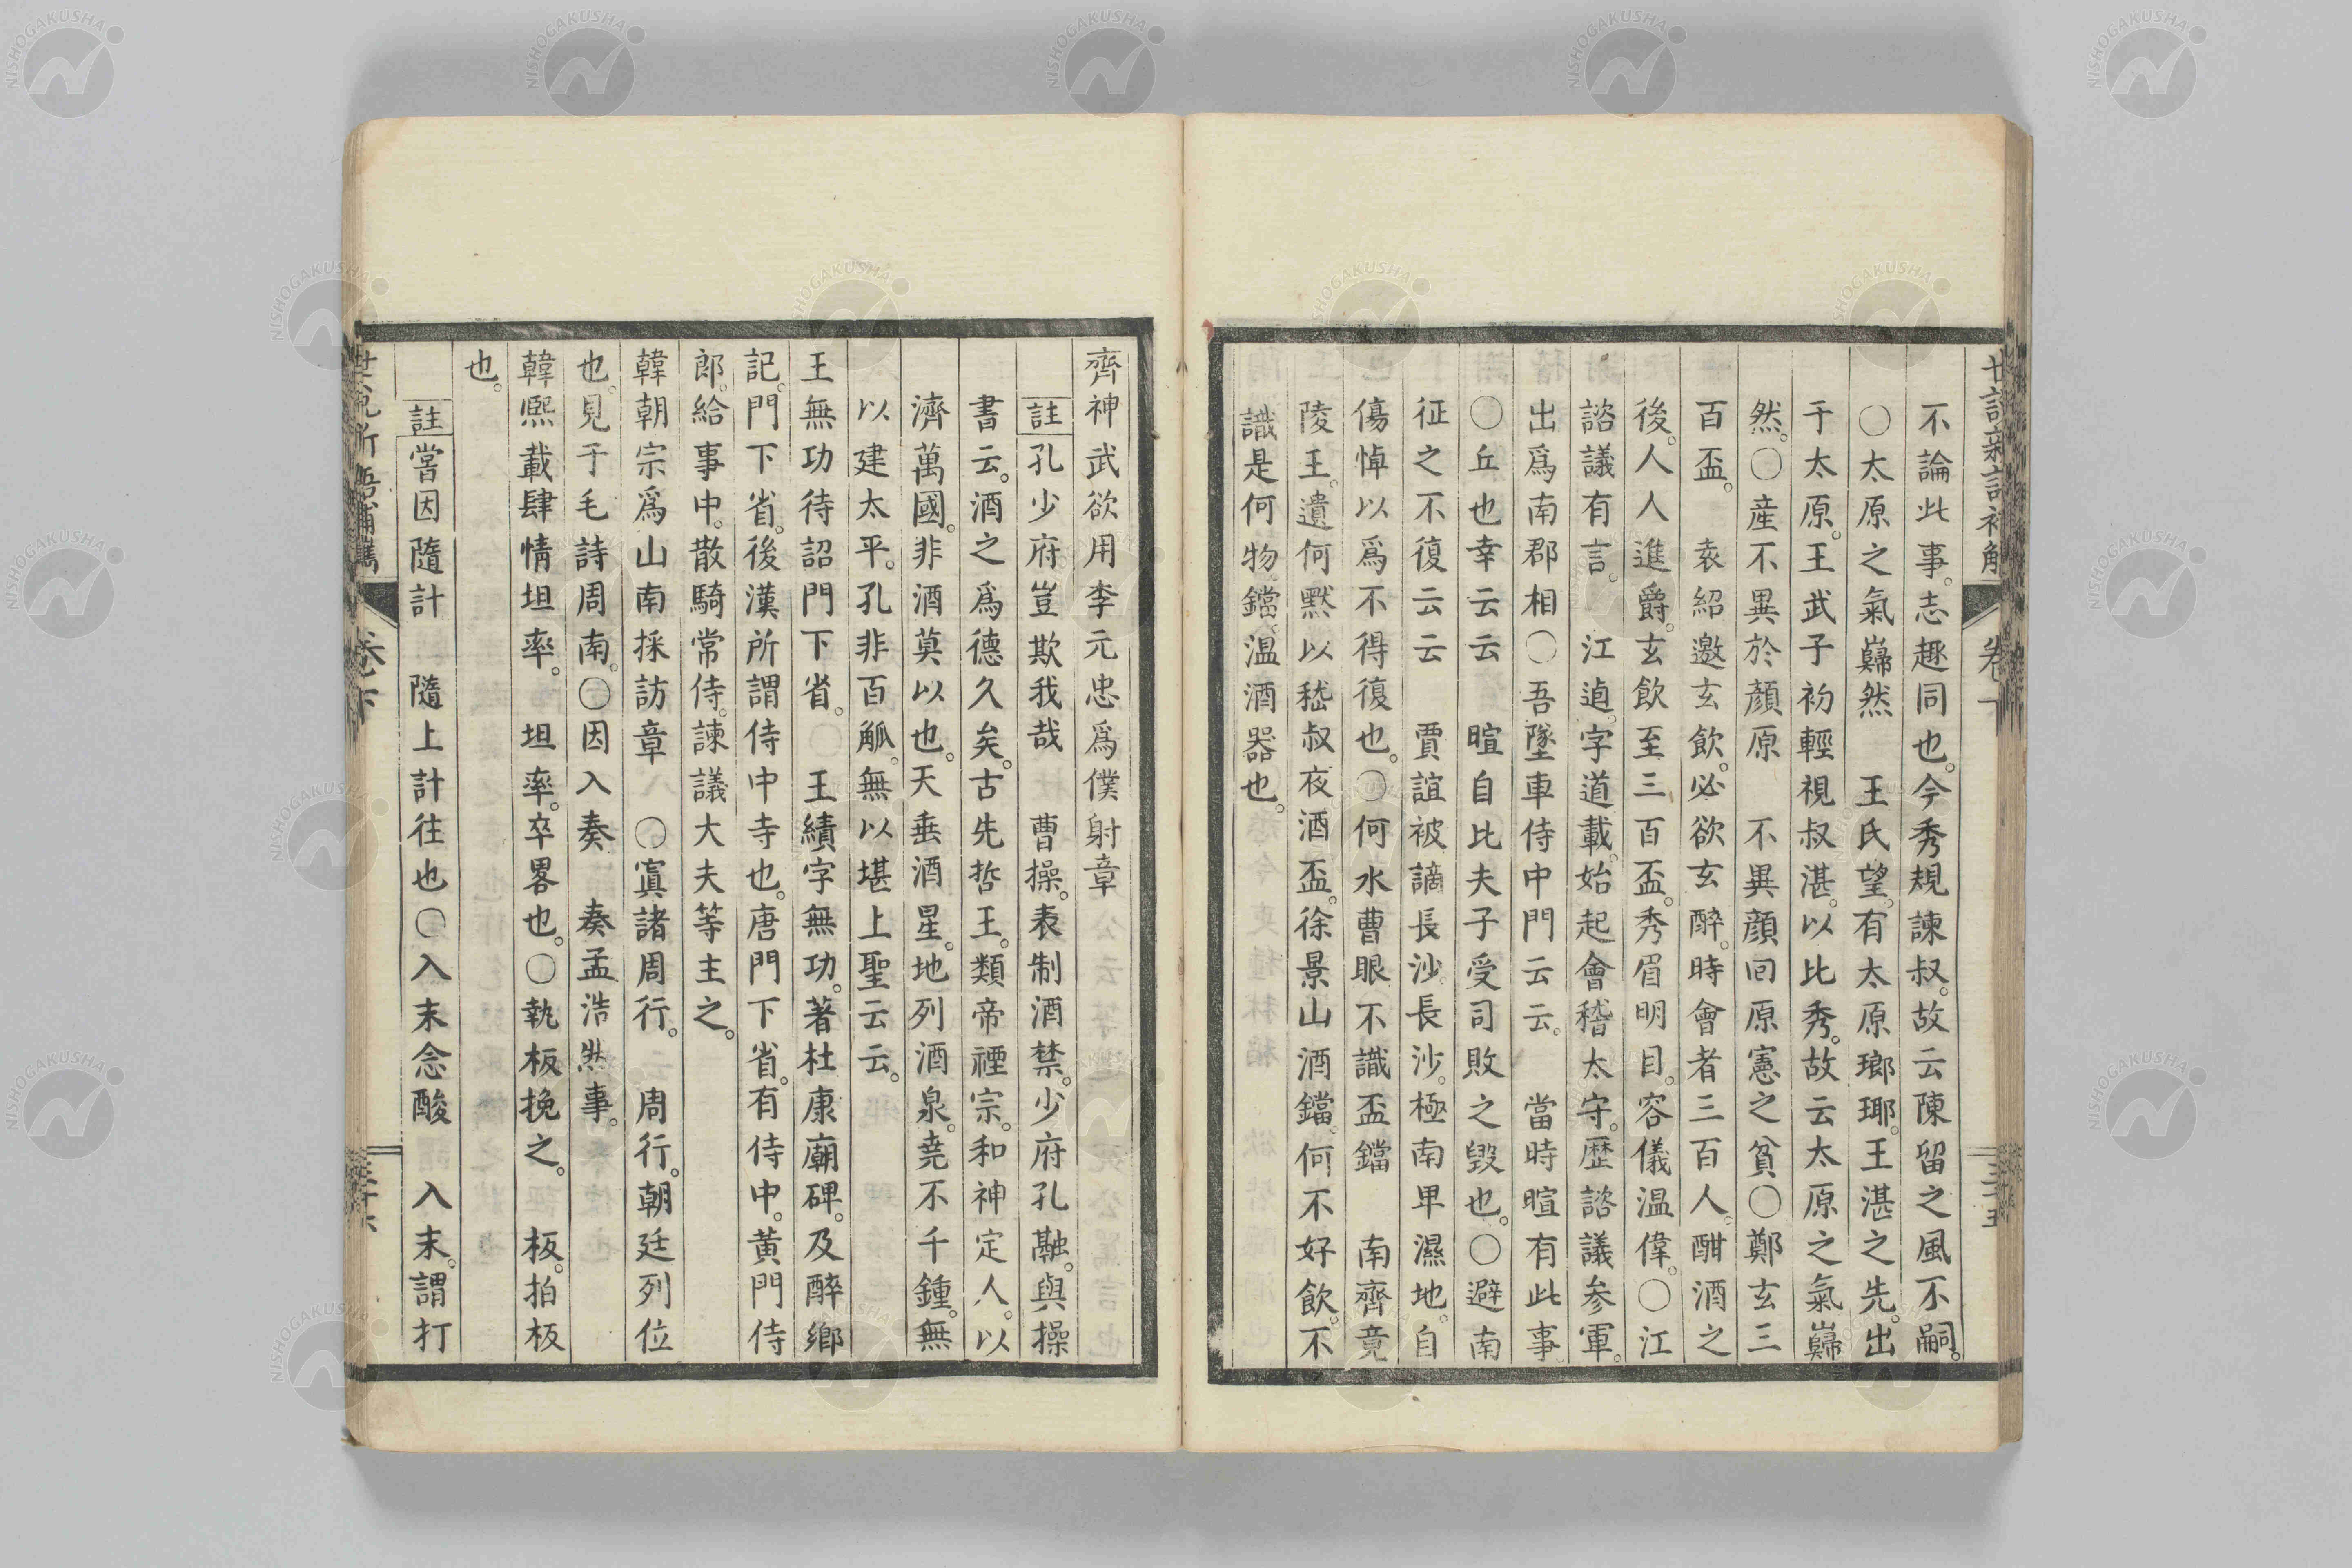 不論此事。志趣同也。今秀規諫叔。故云陳留之風不嗣。
○太原之氣巋然　王氏望。有太原瑯琊。王湛之先。出
于太原。王武子初輕視叔湛。以比秀。故云太原之氣巋
然。○産不異於顏原　不異顏回原憲之貧○鄭玄三
百盃。　袁紹邀玄飲。必欲玄醉。時會者三百人。酣酒之
後。人人進爵。玄飲至三百盃。秀眉明目。容儀温偉。○江
諮議有言。　江逌。字道載。始起會稽太守。歷諮議參軍。
出爲南郡相○吾墜車侍中門云云。　當時暄有此事
○丘也幸云云　暄自比夫子受司敗之毀也。○避南
征之不復云云　賈誼被謫長沙。長沙。極南卑濕地。自
傷悼以爲不得復也。○何水曹眼不識盃鐺　南齊竟
陵王。遺何㸃以嵇叔夜酒盃。徐景山酒鐺。何不好飲。不
識是何物。鐺。温酒器也。
卷下
三十五
齊神武欲用李元忠爲僕射章
註孔少府豈欺我哉　曹操。表制酒禁。少府孔融。與操
書云。酒之爲德久矣。古先哲王。類帝禋宗。和神定人。以
濟萬國。非酒莫以也。天垂酒星。地列酒泉。堯不千鍾。無
以建太平。孔非百觚。無以堪上聖云云。
王無功待詔門下省。○　王績字無功。著杜康廟碑。及醉鄉
記。門下省。後漢所謂侍中寺也。唐門下省。有侍中。黃門侍
郎。給事中。散騎常侍。諫議大夫等主之。
韓朝宗爲山南採訪章　○寘諸周行。　周行。朝廷列位
也。見于毛詩周南。○因入奏　奏孟浩然事。
韓熙載肆情坦率。　坦率。卒畧也。○執板挽之。　板。拍板
也。
註嘗因隨計　隨上計往也○入末念酸　入末。謂打
卷下
三十六